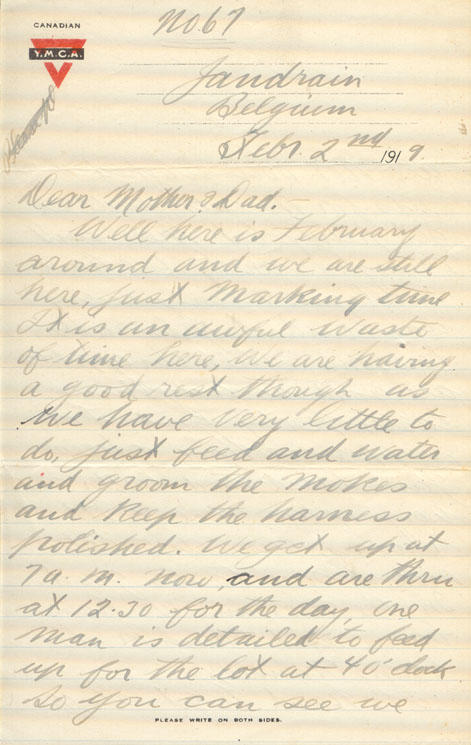 CANADIAN
Y.M.C.A.
No. 67
Jandrain
Belgium
Febr. 2nd 1919.
Dear Mother & Dad. –
Well here is February
around and we are still
here, just marking time
It is an awful waste
of time here, We are having
a good rest though as
we have very little to
do, just feed and water
and groom the mokes
and keep the harness
polished. We get up at
7 a. m. now, and are thru
at 12.30 for the day, one
man is detailed to feed
up for the lot at 4 o'clock
so you can see we
PLEASE WRITE ON BOTH SIDES.